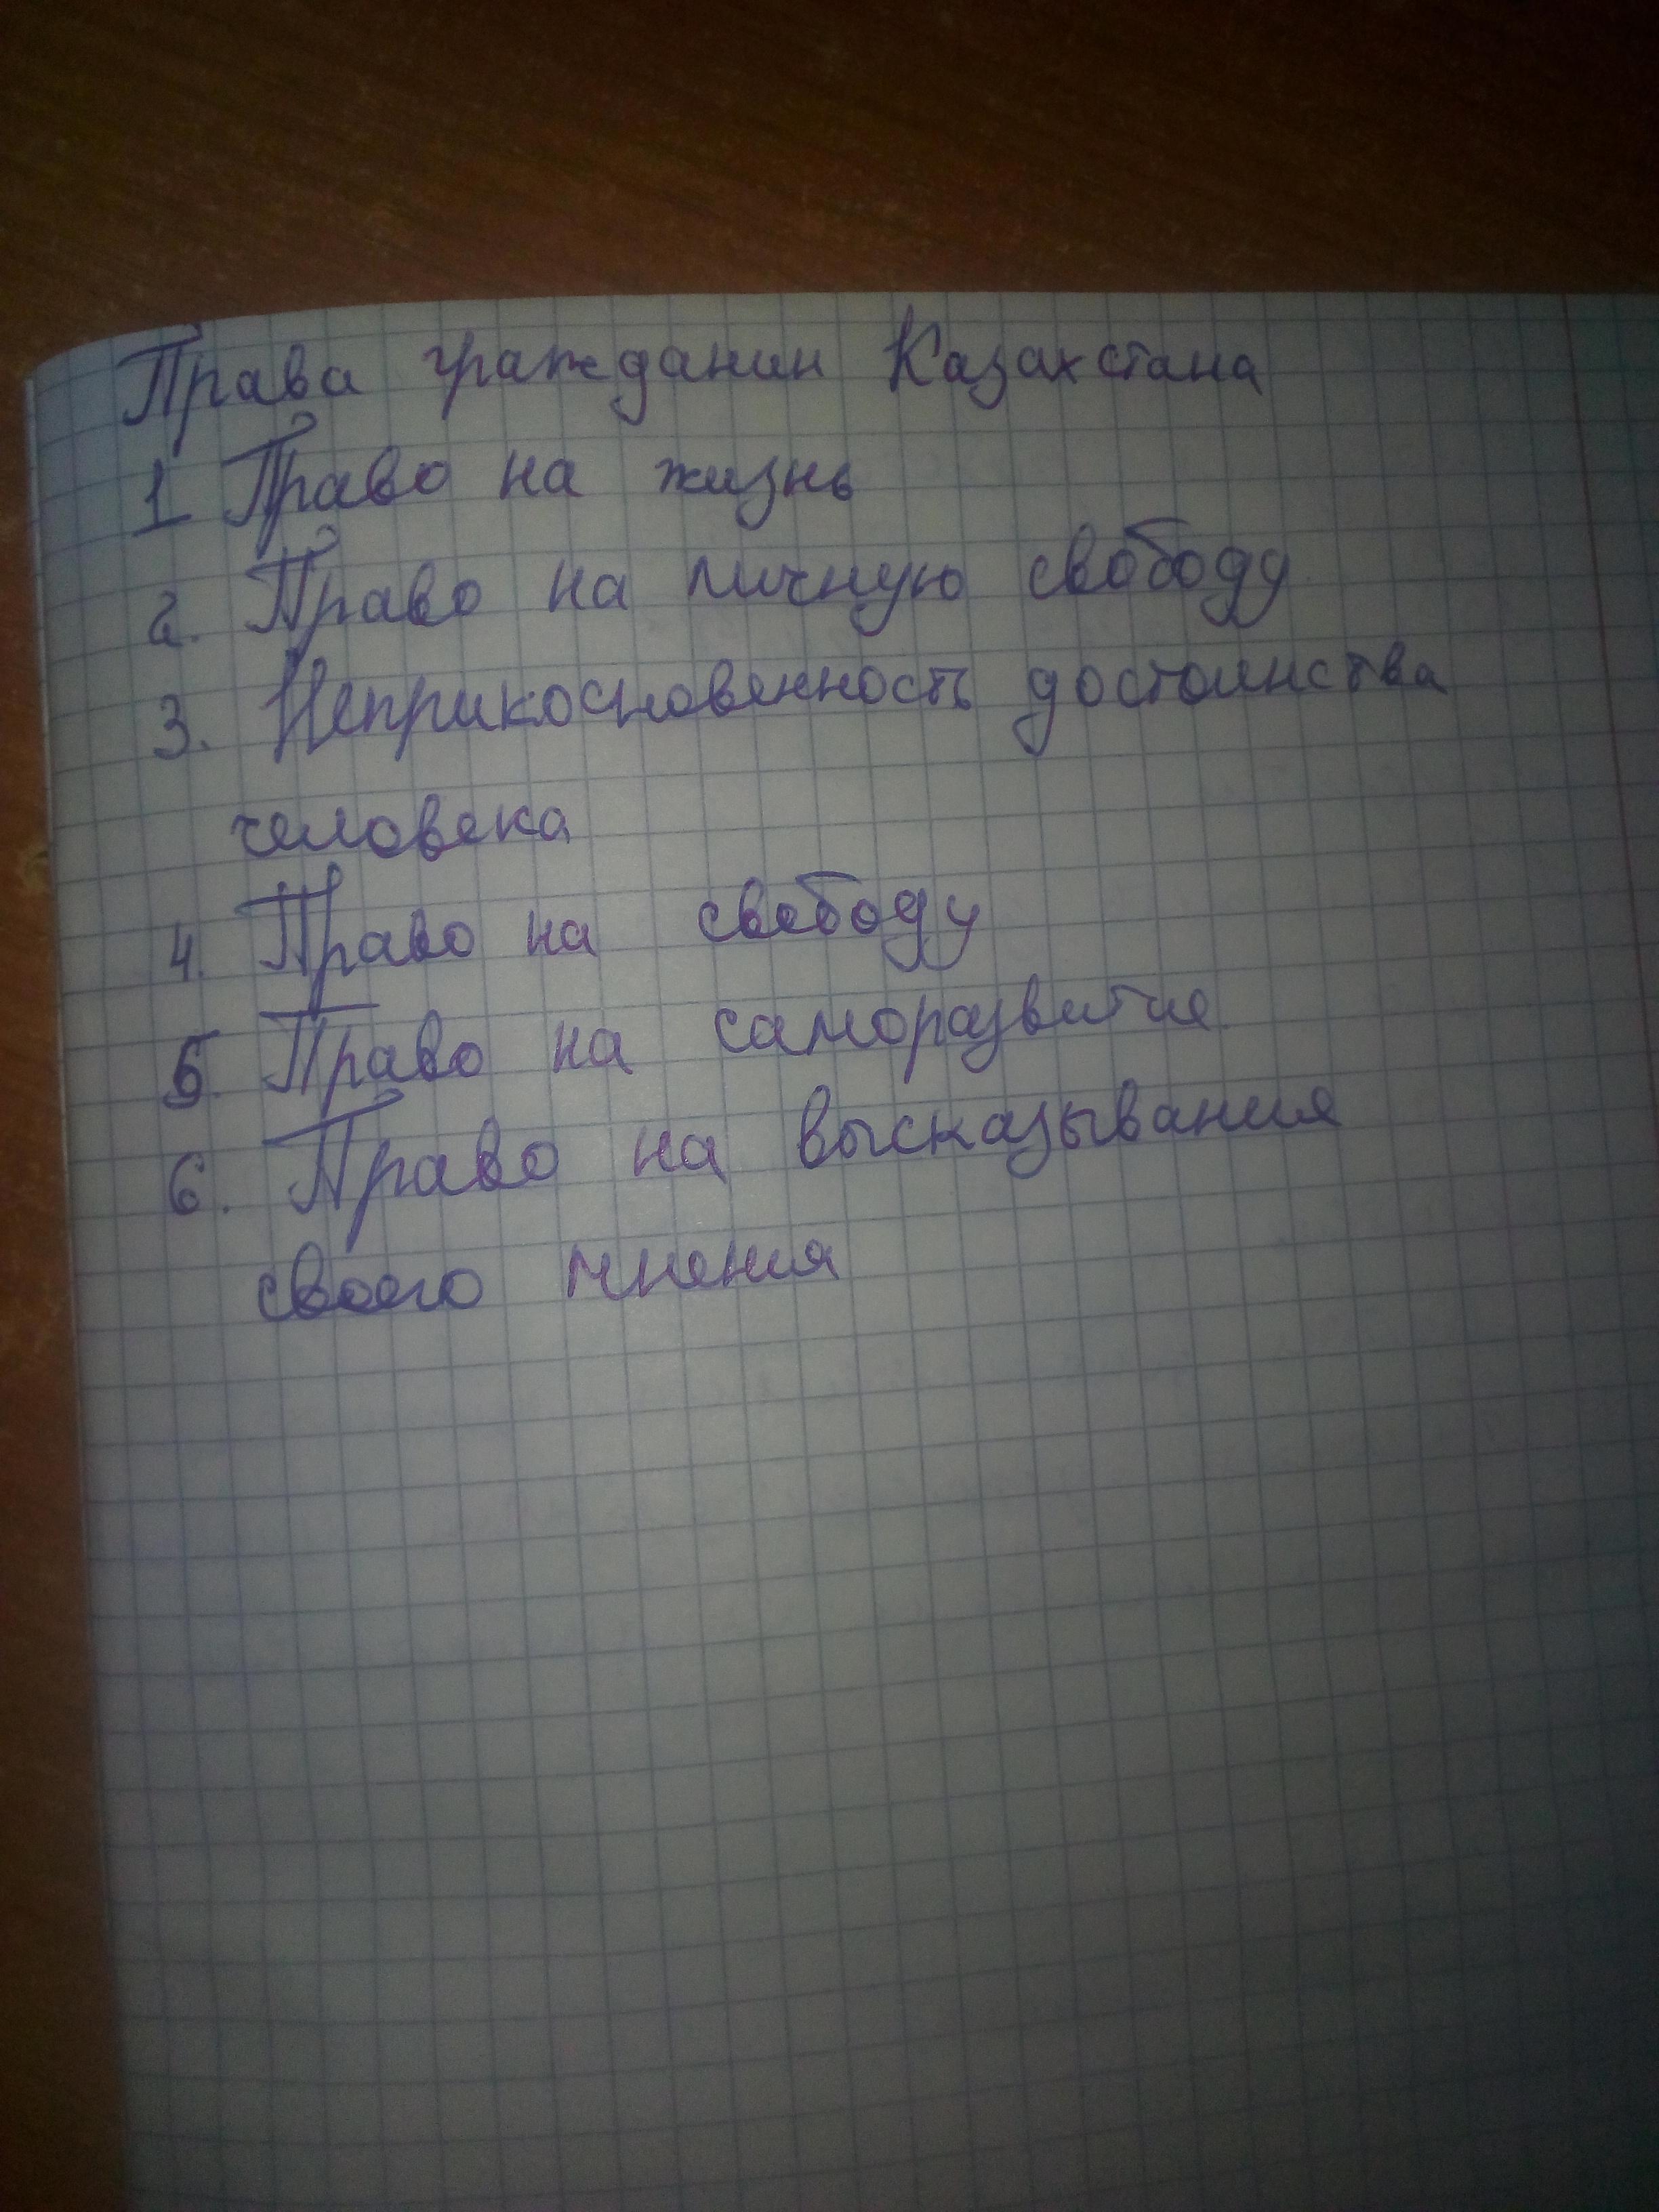 Права гражданин Казахстана
1 Право на жизнь
2. Право на личную свободу
3. Неприкосновенность достоинства
человека
4. Право на свободу
5. Право на саморазвитие
6. Право на высказывания
своего мнения